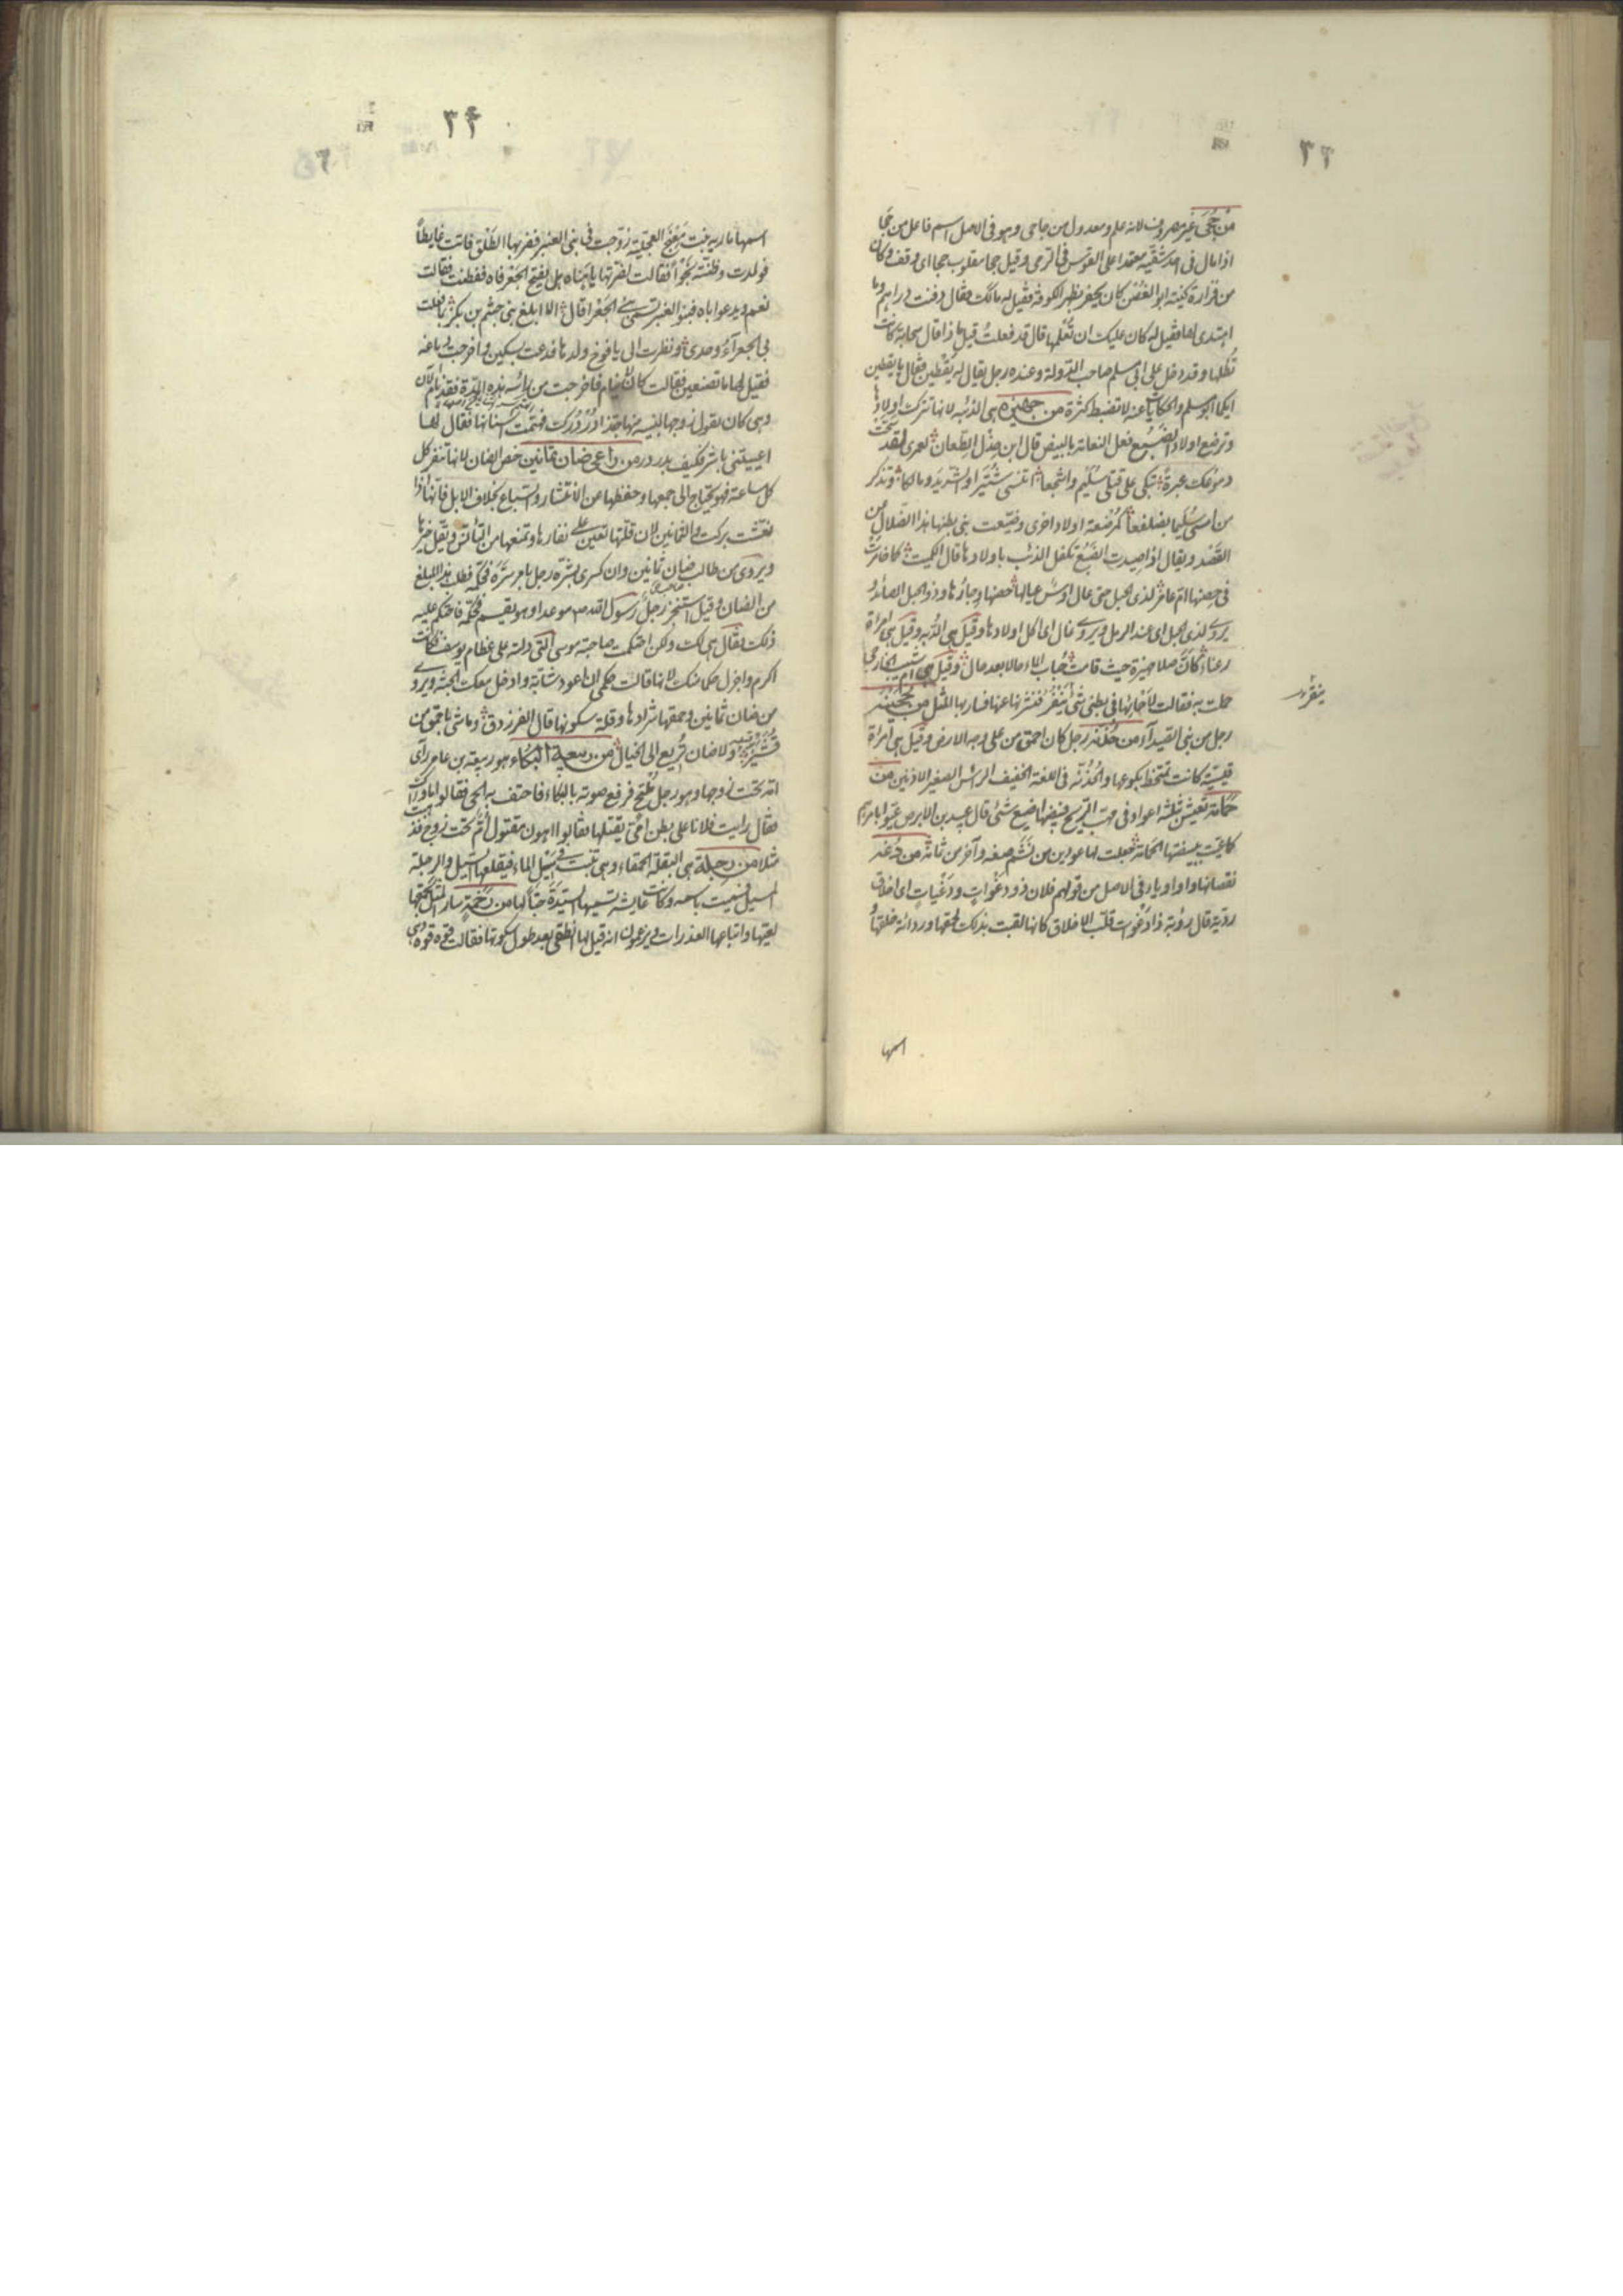 ٣٣
من جحى غير مصروف لانه علم ومعدول من جاحى وهو فى الاصل اسم فاعل من جحا
اذا مال فى احد شقيه معتمدا على القوس فى الرمى وقيل جحا مقلوب حجا اى وقف وكان
من فزارة كنيته ابو الغصن كان يحفر بظهر الكوفة فقيل له مالك فقال دفنت دراهم وما
اهتدى لها فقيل له كان عليك ان تعلمها قال قد فعلت قيل ماذا قال سحابة كانت
تظلها وقد دخل على ابى مسلم صاحب الدولة وعنده رجل يقال له يقطين فقال يا يقطين
ايكما ابو مسلم والحكايات عنه لا تضبط كثرة من جهيزة هى الذئبه لانها تترك اولادها
وترضع اولاد الضبع فعل النعامة بالبيض قال ابن جذل الطعان لعمرى لقد سحت
دموعك عبرة تبكى على قتلى سليم واشجعا اتنسى شتيرا او الشريد ومالكا وتذكر
من امسى سليما بضلفعا كمرضعة اولاد اخرى وضيعت بنى بطنها هذا الضلال من
القصد ويقال اذا صيدت الضبع تكفل الذئب باولادها قال الكميت كما خامرت
فى حضنها ام عامر لذى الحبل حتى عال اوس عيالها حضنها وجارها وذو الحبل الصائد
يروى لذى الحبل اى عند الرمل ويروى غال اى اكل اولادها وقيل هى الدبه وقيل هى امراة
رعناء كان صلا جهيزة حيث قامت حباب الماء حالا بعد حال وقيل هى ام شبيب الخارجى لما
حملت به فقالت لاحمائها فى بطنى شئ ينقز فنشرنها عنها فسار بها المثل من حجينه
رجل من بنى الصيدآء من حذنه رجل كان احمق من على وجه الارض وقيل هى امراة
قيسية كانت تمتخط بكوعها والحذنه فى اللغة الخفيف الراس الصغير الاذنين من
حمامة تعشش بثلثة اعواد فى مهب الريح فبيضها اضيع شئ قال عبيد بن الابرص عيوا بامرهم
كما عيت ببيضتها الحمامة جعلت لها عودين من نشم وآخر من ثمامة من دغة
نقصانها واو او ياء فى الاصل من قولهم فلان ذو دغوات ودغيات اى اخلاق
ردية قال رؤبة ذا دغوات قلب الاخلاق كانها لقبت بذلك لحمقها ورداءة خلقها
ينقز
اسمها
٣٤
اسمها مارية بنت مغنج العجلية زوجت فى بنى العنبر فضربها الطلق فاتت غايطا
فولدت وظنته نجوا فقالت لضرتها يا هنتاه هل يفتح الجعر فاه ففطنت فقالت
نعم ويدعو اباه فبنو العنبر تسمى بنى الجعراء قال الا ابلغ بنى جشم بن بكر بما فعلت
بى الجعرآء وحدى ونظرت الى يافوخ ولدها فدعت بسكين واخرجت دماغه
فقيل لها ما تصنعين فقالت كان لا ينام فاخرجت من راسه هذه المدة فقد نام الآن
وهى كان يقول زوجها لبنيه منها جذا دردرك فهتمت اسنانها فقال لها
اعييتنى باشر فكيف بدردر من راعى ضان ثمانين خص الضان لانها تنفر كل
كل ساعة فهو يحتاج الى جمعها وحفظها عن الانتشار والسباع بخلاف الابل فانها اذا
تعشت بركت والثمانين لان قلتها تعين على نفارها وتمنعها من التانس ويقل خيرها
ويروى من طالب ضان ثمانين وان كسرى بشره رجل بامر سره فحكمه فطلب هذا المبلغ
من الضان وقيل استنجز رجل رسول الله موعدا وهو يقسم فحكمه فاحتكم عليه
ذلك فقال هى لك ولكن احتكمت صاحبة موسى التى دلته على عظام يوسف كانت
اكرم واجزل حكما منك لانها قالت حكمى ان اعود شابة وادخل معك الجنة ويروى
من ضان ثمانين وحمقها شرادها وقلة سكونها قال الفرزدق وما شى باحمق من
قشير ولا ضان تريع الى الخيال من ربيعة البكاء هو ربيعة بن عامر راى
امه تحت زوجها وهو رجل ملتح فرفع صوته بالبكاء فاحتف به الحى فقالوا ما وراك
فقال رايت فلانا على بطن امى يقتلها فقالوا اهون مقتول ام تحت زوج فذهبت
مثلا من رجلة هى البقلة الحمقاء وهى تنبت فى سبيل الماء فيقلعها السيل والرجلة
المسيل فسميت باسمه وكانت عايشة تسميها السيدة حبا لها من رخمة سار المثل بحمقها
لعيها واتباعها العذرات ويزعمون انه قيل لها انطقى بعد طول سكوتها فقالت قوه قوه